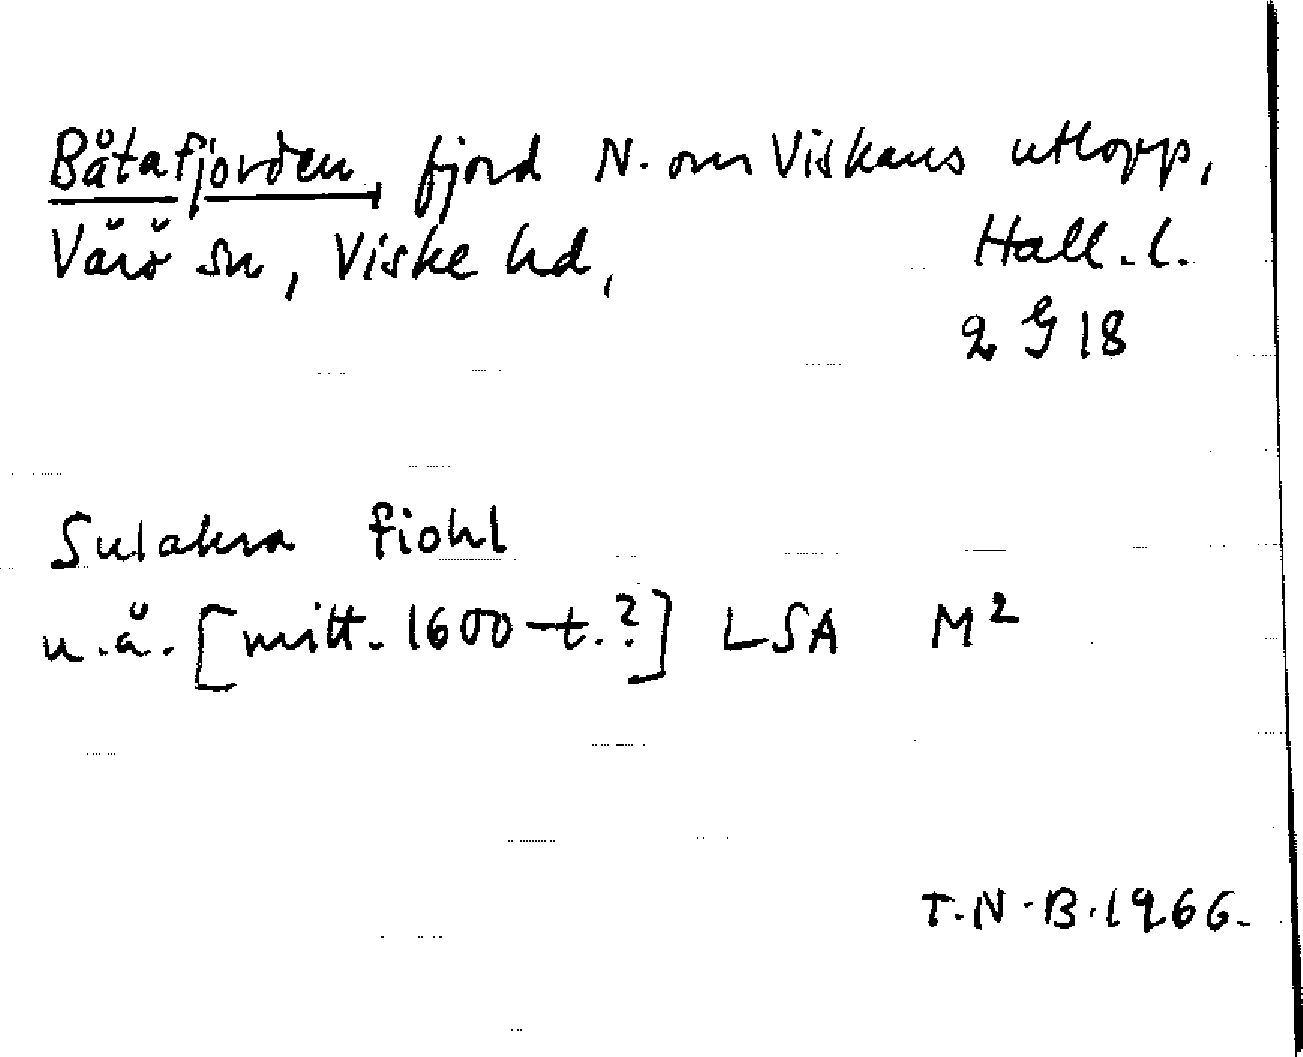 Båtafjorden, fjord N. om Viskans utlopp,
Värö sn, Viske hd, Hall. l.
2 G 18
Sulakra fiohl
u.å. [mitt. 1600-t.?] LSA M²
T.N.B. 1966.